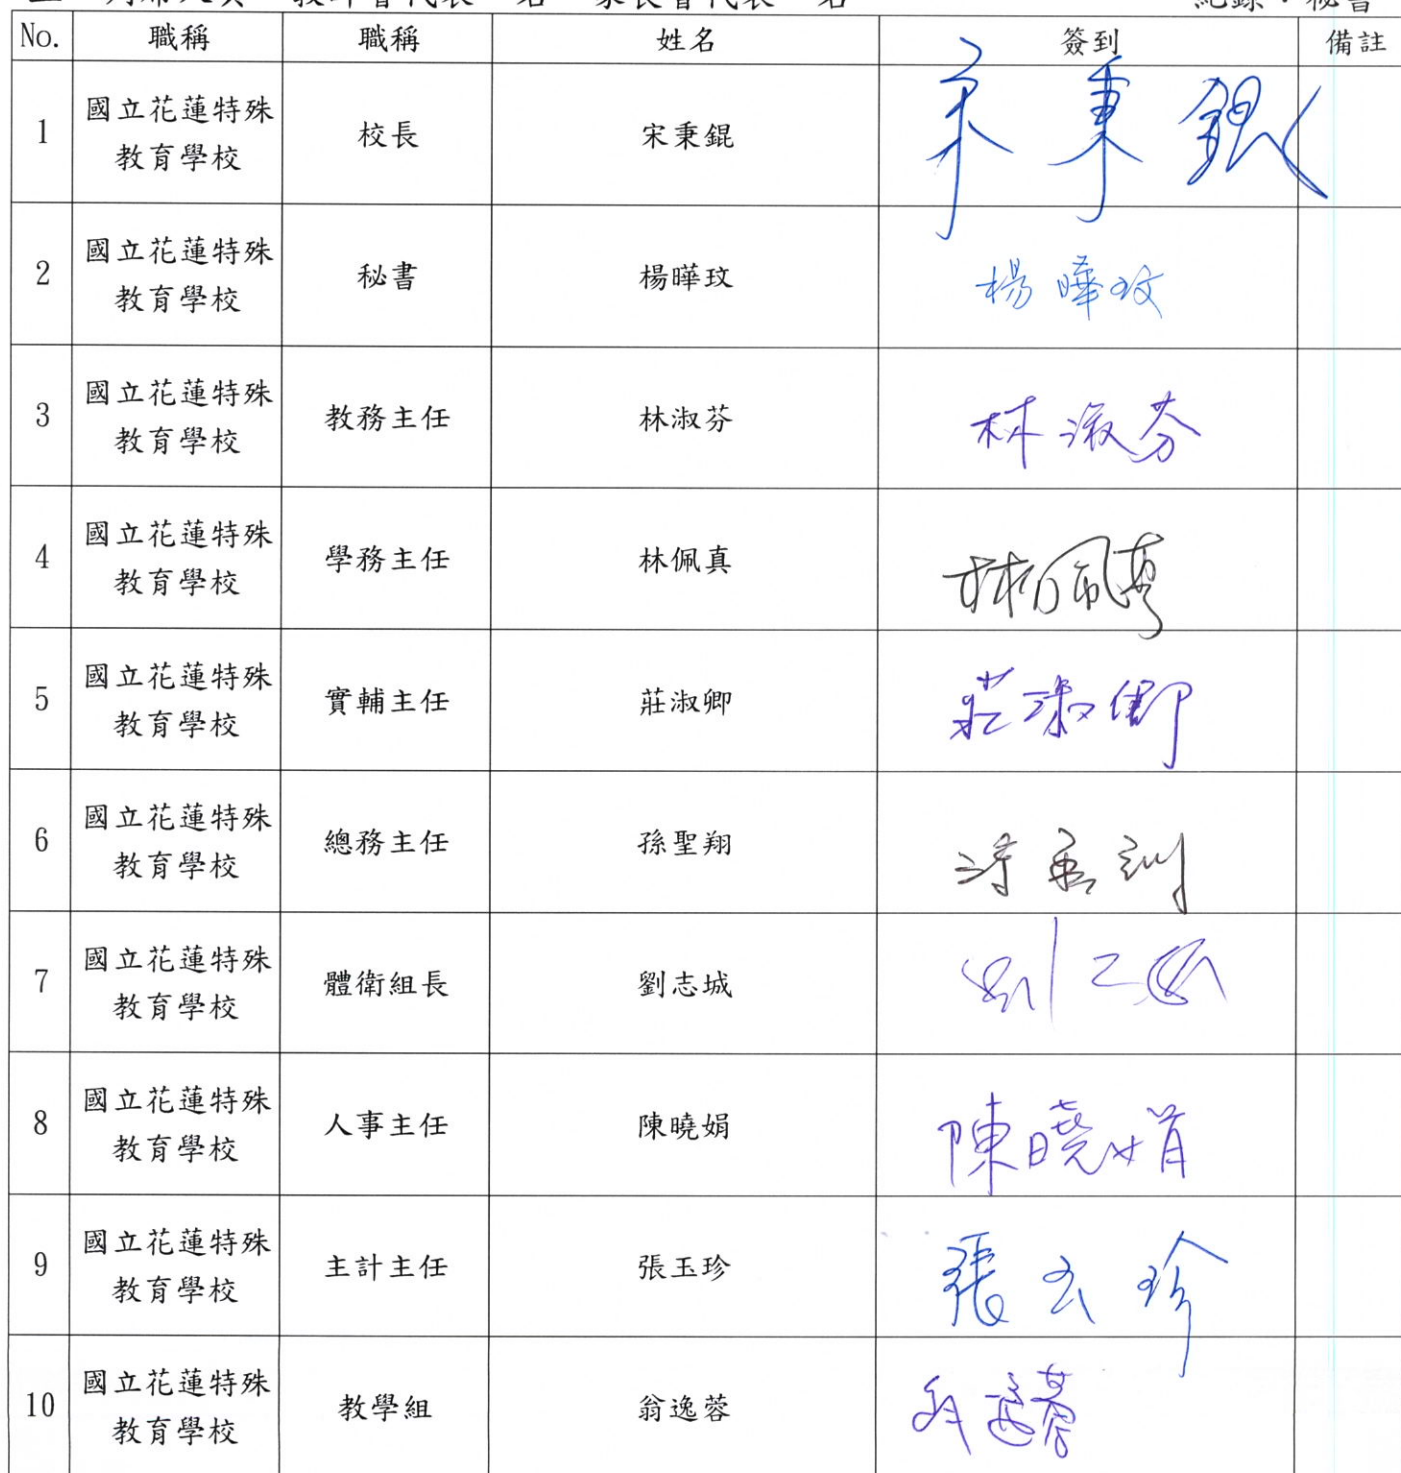 No. 職稱 職稱 姓名 簽到 備註
1 國立花蓮特殊教育學校 校長 宋秉錕 宋秉錕
2 國立花蓮特殊教育學校 秘書 楊曄玟 楊曄玟
3 國立花蓮特殊教育學校 教務主任 林淑芬 林淑芬
4 國立花蓮特殊教育學校 學務主任 林佩真 林佩真
5 國立花蓮特殊教育學校 實輔主任 莊淑卿 莊淑卿
6 國立花蓮特殊教育學校 總務主任 孫聖翔
7 國立花蓮特殊教育學校 體衛組長 劉志城
8 國立花蓮特殊教育學校 人事主任 陳曉娟 陳曉娟
9 國立花蓮特殊教育學校 主計主任 張玉珍 張玉珍
10 國立花蓮特殊教育學校 教學組 翁逸蓉 翁逸蓉